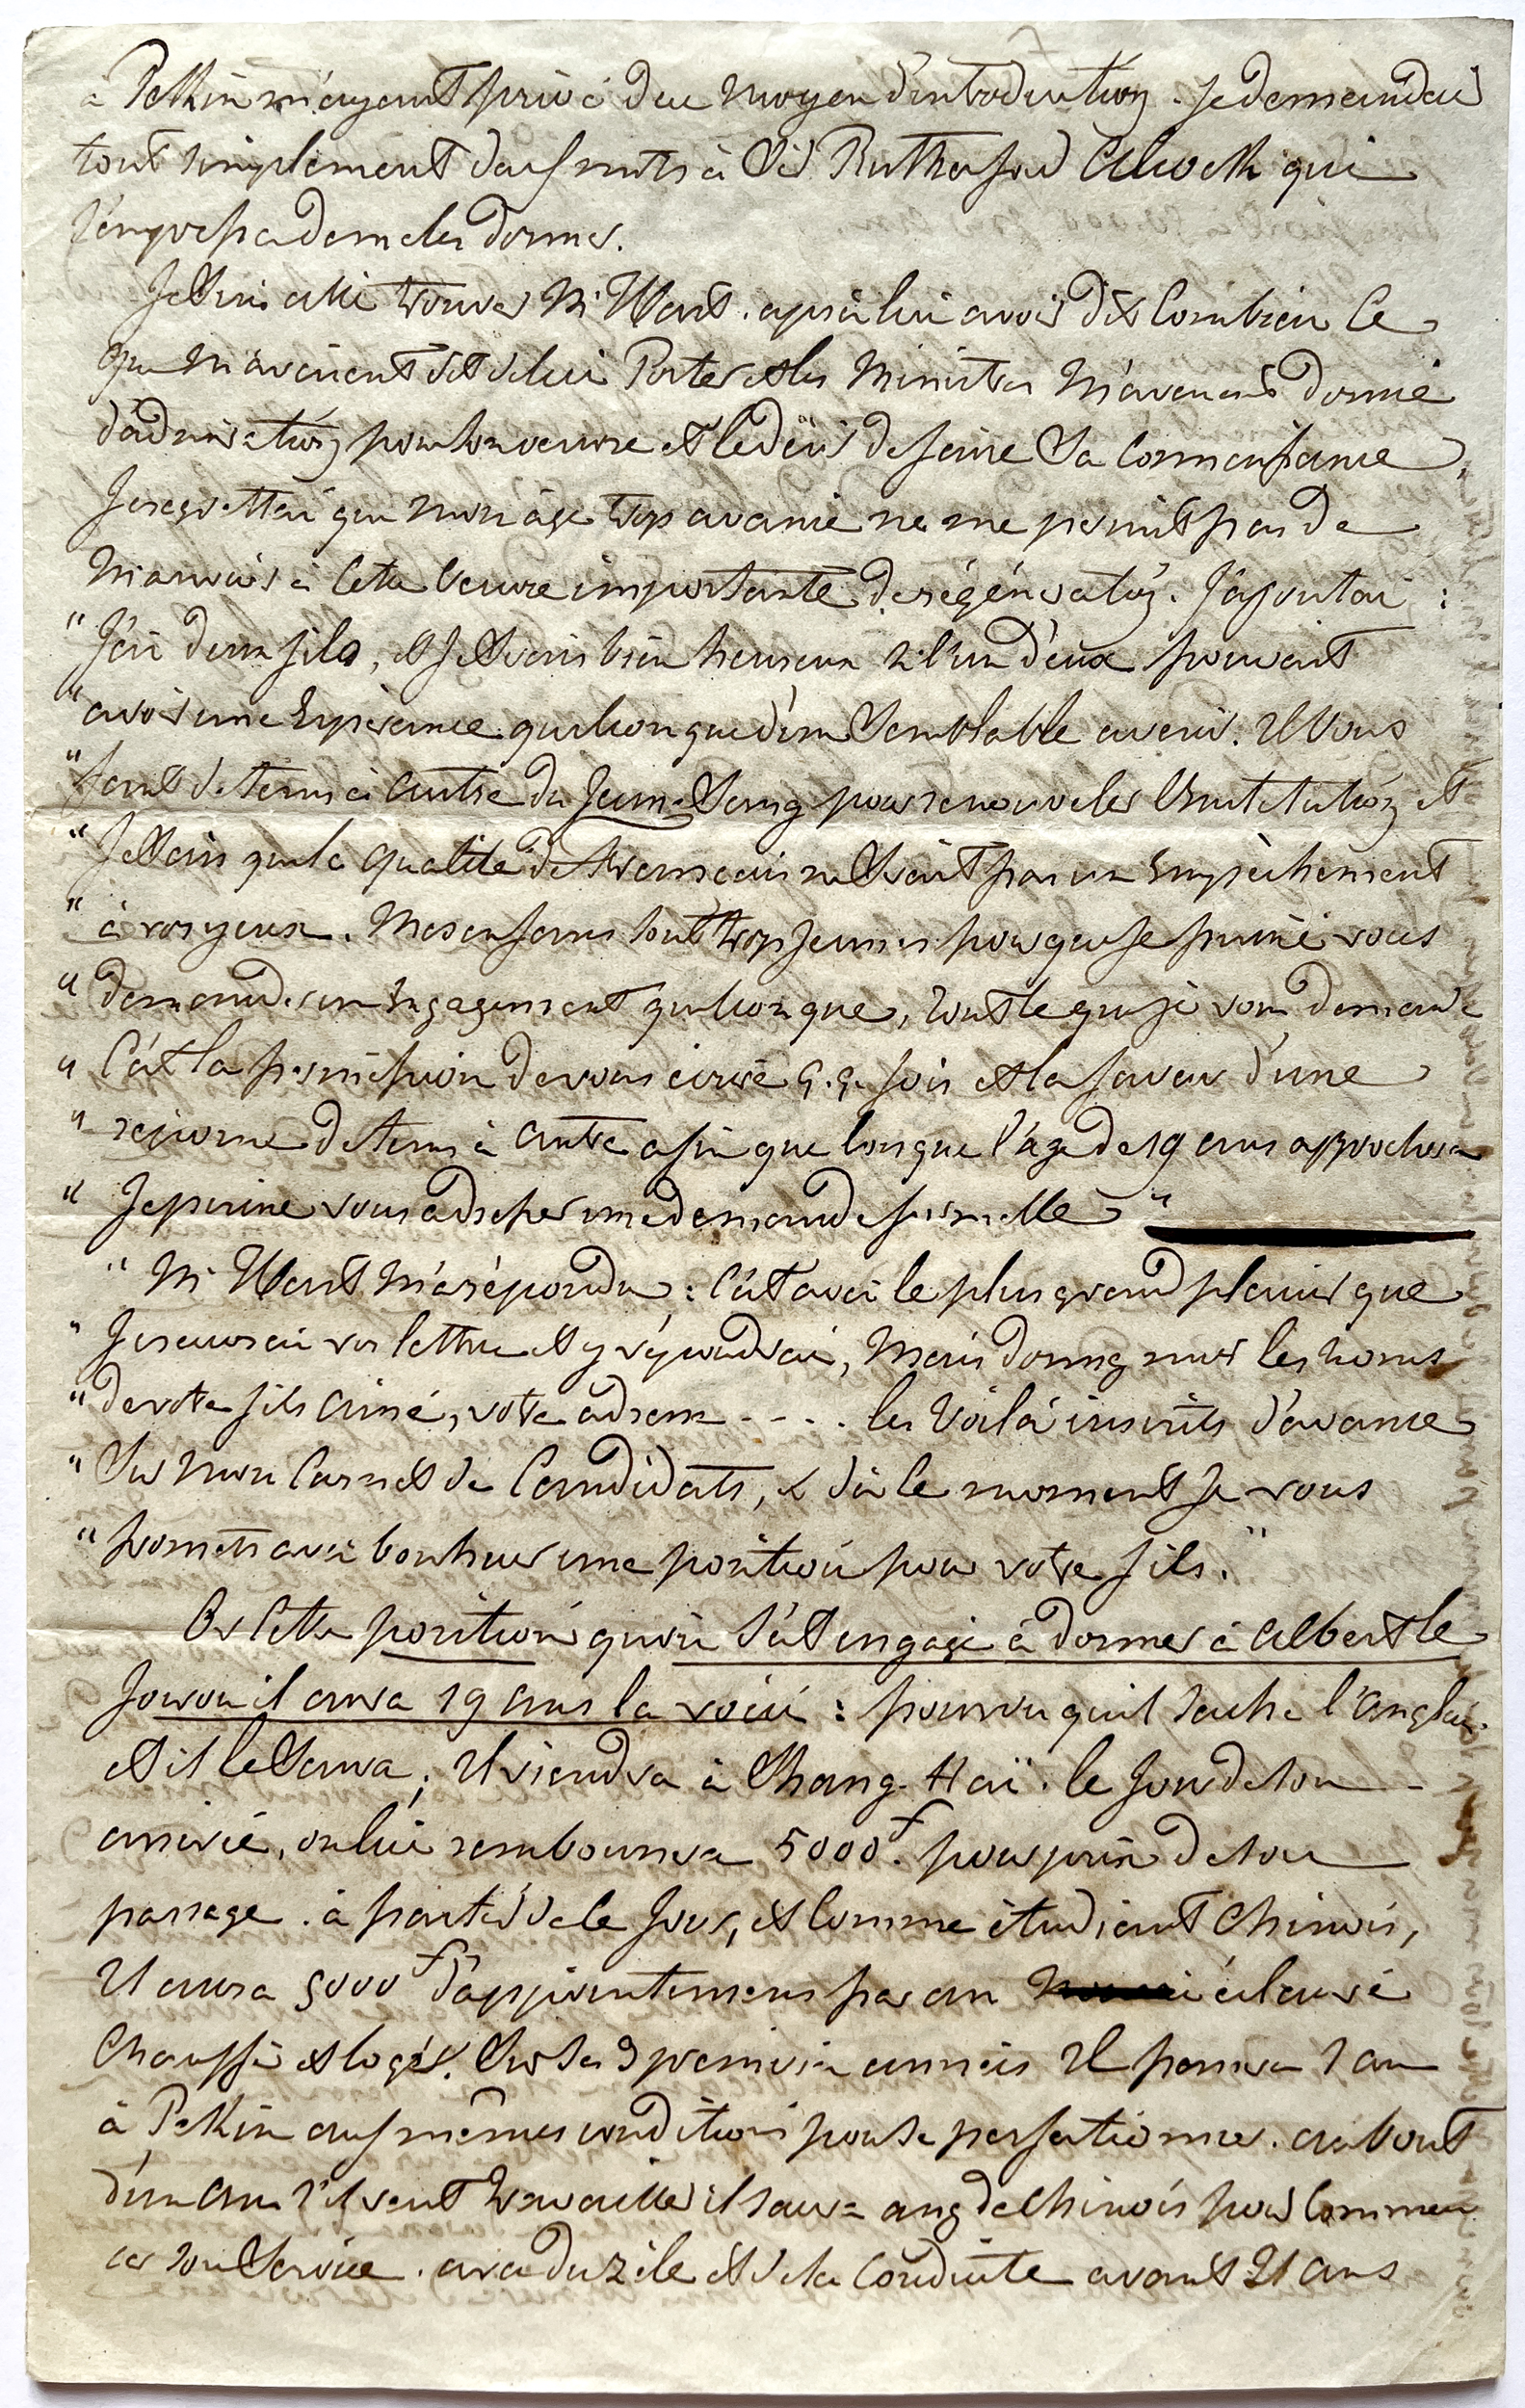 à Pekin m'ayant privé du moyen d'introduction. Je demandai
tout simplement deux mots à Sir Rutherford Alcock qui
s'empressa de me les donner.
Je suis allé trouver Mr Hart. après lui avoir dit combien ce
que m'avaient dit de lui Porter et les Ministres m'avaient donné
d'admiration pour son œuvre et le désir de faire sa connaissance,
Je regrettai que mon âge trop avancé ne me permit pas de
m'associer à cette œuvre importante de régénération. J'ajoutai :
" J'ai deux fils, et je serais bien heureux si l'un d'eux pouvait
" avoir une Espérance quelconque d'un semblable avenir. Il vous
" faut de tems à autre du Jeune Sang pour renouveler l'institution et
" Je sais que la qualité de Français ne serait pas un Empêchement
" à vos yeux. Mes enfans sont trop jeunes pour que je puisse vous
" demander un Engagement quelconque, tout ce que je vous demande
" C'est la permission de vous écrire q.q. fois et la faveur d'une
" réponse de tems à autre afin que lorsque l'âge de 19 ans approchera
" Je puisse vous adresser une demande formelle "
" Mr Hart m'a répondu : C'est avec le plus grand plaisir que
" Je recevrai vos lettres et y répondrai, Mais donnez moi les noms
" de votre fils aîné, votre adresse - - . . les Voilà inscrits d'avance
" Sur mon Carnet de Candidats, & dès ce moment Je vous
" promets avec bonheur une position pour votre fils. "
Or Cette position qu'on s'est engagé à donner à Albert le
Jour où il aura 19 ans la voici : pourvu qu'il sache l'anglais
et il le saura ; Il viendra à Shang-Haï. le Jour de son
arrivée, on lui remboursera 5000f. pour prix de son
passage. à partir de ce Jour, et comme étudiant Chinois,
Il aura 5000f d'appointemens par an éclairé
Chauffé et logé. Sur les 3 premières années Il passera 1 an
à Pekin aux mêmes conditions pour se perfectionner. au bout
d'un an s'il veut travailler il saura assez de Chinois pour Commen
cer son Service. avec du zèle et de la Conduite avant 21 ans